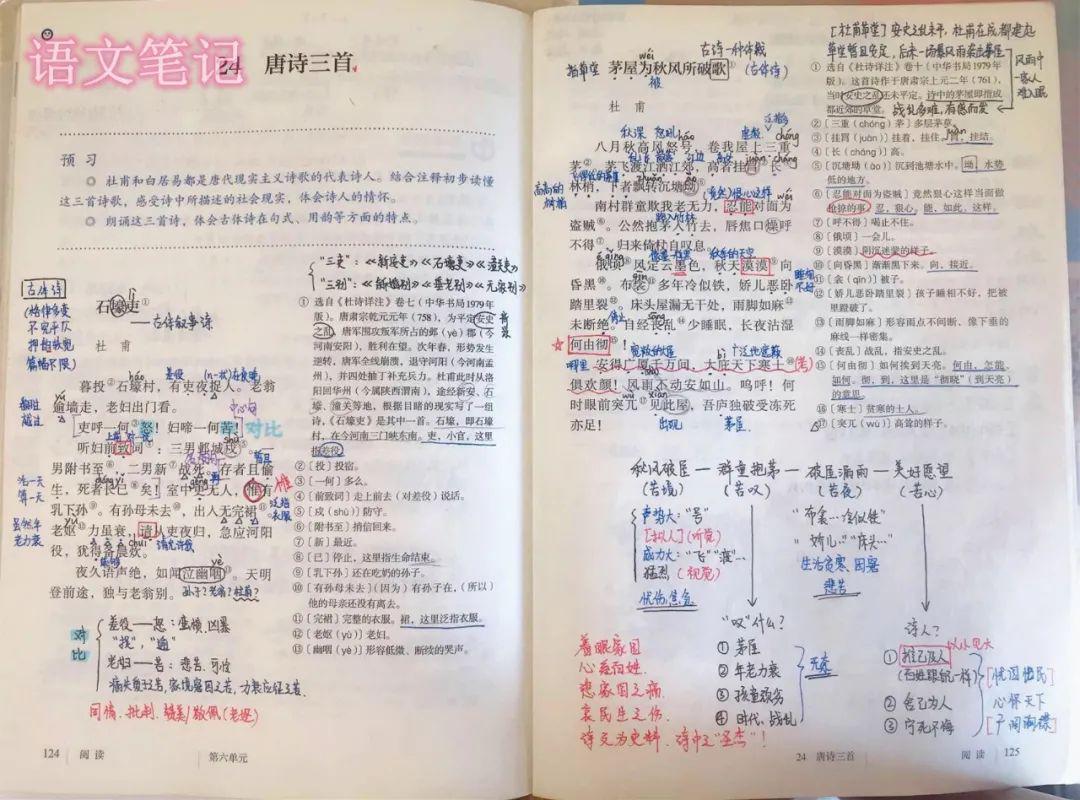 语文笔记
24 唐诗三首
预习
◎ 杜甫和白居易都是唐代现实主义诗歌的代表诗人。结合注释初步读懂
这三首诗歌，感受诗中所描述的社会现实，体会诗人的情怀。
◎ 朗诵这三首诗，体会古体诗在句式、用韵等方面的特点。
"三吏"：《新安吏》《石壕吏》《潼关吏》
"三别"：《新婚别》《垂老别》《无家别》
古体诗
(格律自由
不究平仄
押韵较宽
篇幅不限)
石壕吏①
——古体叙事诗
杜甫
暮投②石壕村，有吏夜捉人。老翁
逾墙走，老妇出门看。
吏呼一何③怒！妇啼一何苦！
对比
听妇前致词④：三男邺城戍⑤。一
男附书至⑥，二男新⑦战死。存者且偷
生，死者长已⑧矣！室中更无人，惟有
乳下孙⑨。有孙母未去⑩，出入无完裙⑪。
老妪⑫力虽衰，请从吏夜归，急应河阳
役，犹得备晨炊。
夜久语声绝，如闻泣幽咽⑬。天明
登前途，独与老翁别。
翻过
越过
活一天
算一天
虽然年
老力衰
① 选自《杜诗详注》卷七（中华书局1979年
版）。唐肃宗乾元元年（758），为平定安史
之乱，唐军围攻叛军所占的邺（yè）郡（今
河南安阳），胜利在望。次年春，形势发生
逆转，唐军全线崩溃，退守河阳（今河南孟
州），并四处抽丁补充兵力。杜甫此时从洛
阳回华州（今属陕西渭南），途经新安、石
壕、潼关等地，根据目睹的现实写了一组
诗，《石壕吏》是其中一首。石壕，即石壕
村，在今河南三门峡东南。吏，小官，这里
指差役。
②〔投〕投宿。
③〔一何〕多么。
④〔前致词〕走上前去（对差役）说话。
⑤〔戍（shù）〕防守。
⑥〔附书至〕捎信回来。
⑦〔新〕最近。
⑧〔已〕停止，这里指生命结束。
⑨〔乳下孙〕还在吃奶的孙子。
⑩〔有孙母未去〕（因为）有孙子在，（所以）
他的母亲还没有离去。
⑪〔完裙〕完整的衣服。裙，这里泛指衣服。
⑫〔老妪（yù）〕老妇。
⑬〔幽咽（yè）〕形容低微、断续的哭声。
对比
差役——怒：蛮横、凶暴
"捉"，"逾"
老妇——苦：悲苦、可怜
同情、批判、赞美/敬佩(老妪)
124 阅读 第六单元
古诗一种体裁
(古体诗)
指草堂 茅屋为秋风所破歌①
被
杜甫
八月秋高风怒号，卷我屋上三重
茅②。茅飞渡江洒江郊，高者挂罥③长④
林梢，下者飘转沉塘坳⑤。
南村群童欺我老无力，忍能对面为
盗贼⑥。公然抱茅入竹去，唇焦口燥呼
不得⑦，归来倚杖自叹息。
俄顷⑧风定云墨色，秋天漠漠⑨向
昏黑⑩。布衾⑪多年冷似铁，娇儿恶卧
踏里裂⑫。床头屋漏无干处，雨脚如麻⑬
未断绝。自经丧乱⑭少睡眠，长夜沾湿
何由彻⑮！
安得广厦千万间，大庇天下寒士⑯
俱欢颜！风雨不动安如山。呜呼！何
时眼前突兀⑰见此屋，吾庐独破受冻死
亦足！
[杜甫草堂] 安史之乱未平，杜甫在成都建起
草堂暂且安定，后来一场暴风雨袭击草屋
风雨中
一家人
难入眠
战乱多难，有感而发
① 选自《杜诗详注》卷十（中华书局1979年
版）。这首诗作于唐肃宗上元二年（761），
当时安史之乱还未平定。诗中的茅屋即指成
都近郊的草堂。
②〔三重（chóng）茅〕多层茅草。
③〔挂罥（juàn）〕挂着，挂住。罥，挂结。
④〔长（cháng）〕高。
⑤〔沉塘坳（ào）〕沉到池塘水中。坳，水势
低的地方。
⑥〔忍能对面为盗贼〕竟然狠心这样当面做
抢掠的事。忍，狠心。能，如此，这样。
⑦〔呼不得〕喝止不住。
⑧〔俄顷〕一会儿。
⑨〔漠漠〕阴沉迷蒙的样子。
⑩〔向昏黑〕渐渐黑下来。向，接近。
⑪〔衾（qīn）〕被子。
⑫〔娇儿恶卧踏里裂〕孩子睡相不好，把被
里蹬破了。
⑬〔雨脚如麻〕形容雨点不间断，像下垂的
麻线一样密集。
⑭〔丧乱〕战乱，指安史之乱。
⑮〔何由彻〕如何挨到天亮。何由，怎能、
如何。彻，到，这里是"彻晓"（到天亮）
的意思。
⑯〔寒士〕贫寒的士人。
⑰〔突兀（wù）〕高耸的样子。
秋风破屋——群童抱茅——破屋漏雨——美好愿望
(苦境) (苦叹) (苦夜) (苦心)
声势大："号"
[拟人] (听觉)
威力大："飞""洒"…
猛烈 (视觉)
忧伤，焦急
"布衾…冷似铁"
"娇儿…""床头…"
生活贫寒、困窘
悲苦
"叹"什么？
① 茅屋
② 年老力衰
③ 孩童顽劣
④ 时代、战乱
无奈
诗人？
以小见大
① 推己及人
② 舍己为人
③ 宁死不悔
[忧国忧民]
心怀天下
着眼家国
心益百姓
悲家国之痛
哀民生之伤
诗文为史料，诗中之"圣杰"！
24 唐诗三首 阅读 125